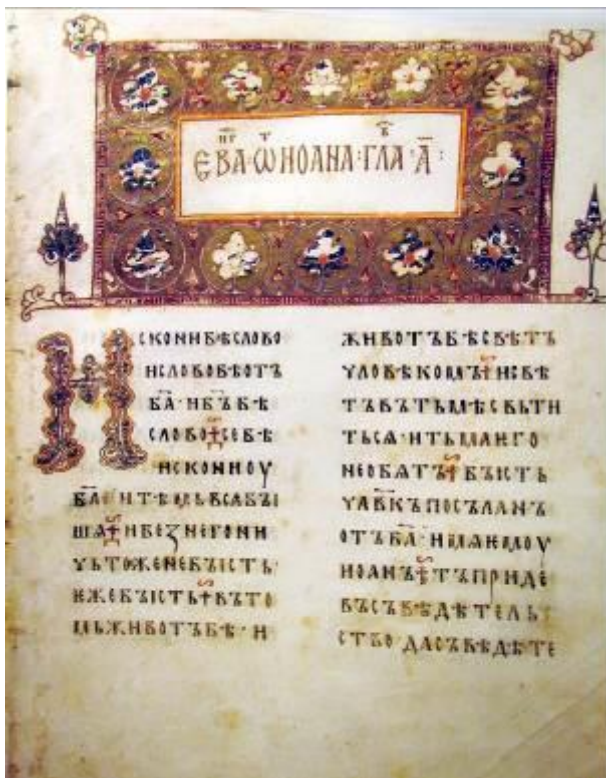 ЕВА Ѡ ИОАНА · ГЛА · А҃ :
ИСКОНИ БѢ СЛОВО
И СЛОВО БѢ ОТЪ
Б҃А · И Б҃Ъ БѢ
СЛОВО СЕ БѢ
ИСКОНИ ОУ
Б҃А · И ТѢМЬ ВСѦ БЫ
ШѦ И БЕЗ НЕГО НИ
ЧЬТОЖЕ НЕ БЫСТЬ ·
ЕЖЕ БЫСТЬ ВЪ ТО
МЬ ЖИВОТЪ БѢ · И
ЖИВОТЪ БѢ СВѢТЪ
ЧЛОВѢКОМЪ И СВѢ
ТЪ ВЪ ТЬМѢ СВЬТИ
ТЬСѦ · И ТЬМА ѤГО
НЕ ОБѦТЪ БЫСТЬ
ЧЛ҃ВКЪ ПОСЪЛАНЪ
ОТЪ Б҃А · ИМѦ ѤМОУ
ИОАНЪ ТЪ ПРИДЕ
ВЪ СЪВѢДѢТЕЛЬ
СТВО ДА СЪВѢДѢТЕ